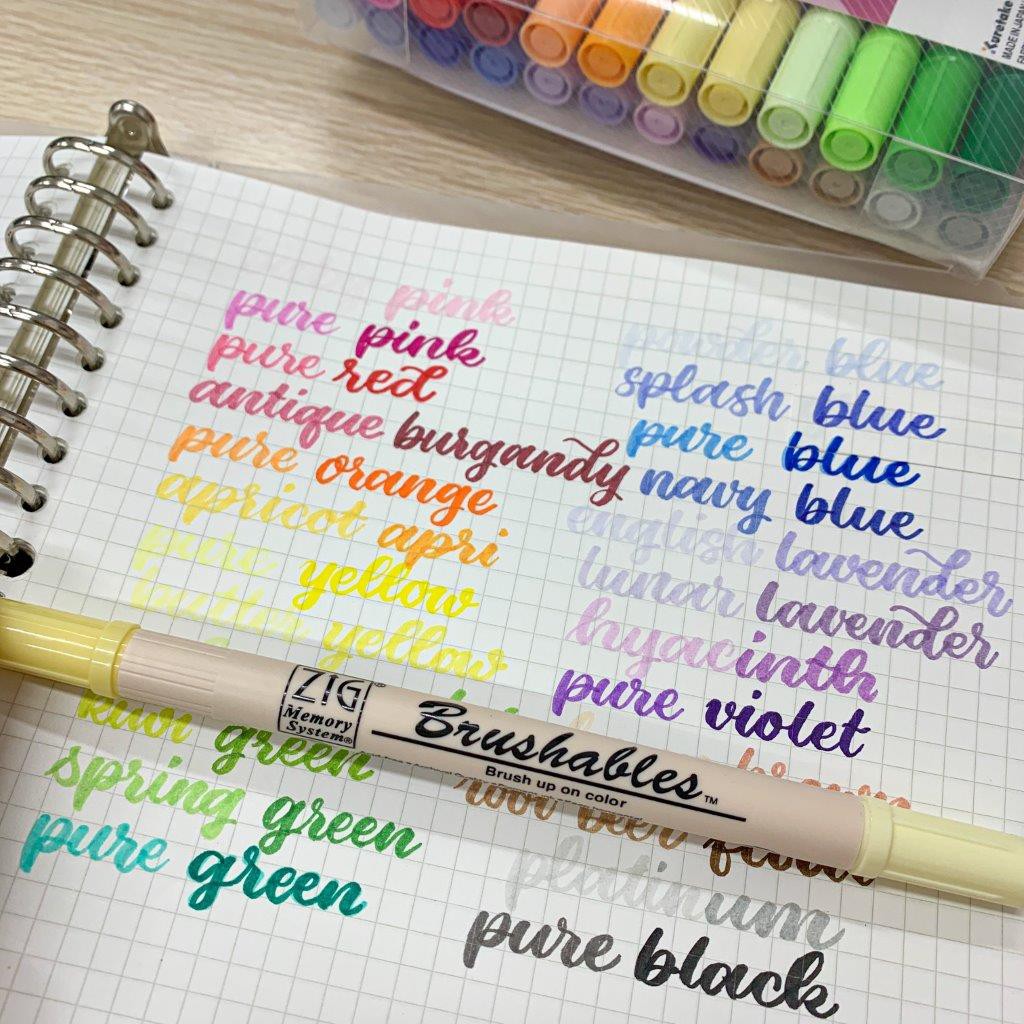 Kuretake
MADE IN JAPAN
pink
pure pink
pure red
antique burgandy
pure orange
apricot apri
pure yellow
butter yellow
kiwi green
spring green
pure green
powder blue
splash blue
pure blue
navy blue
english lavender
lunar lavender
hyacinth
pure violet
brown
root beer float
platinum
pure black
ZIG®
Memory
System®
Brushables™
Brush up on color